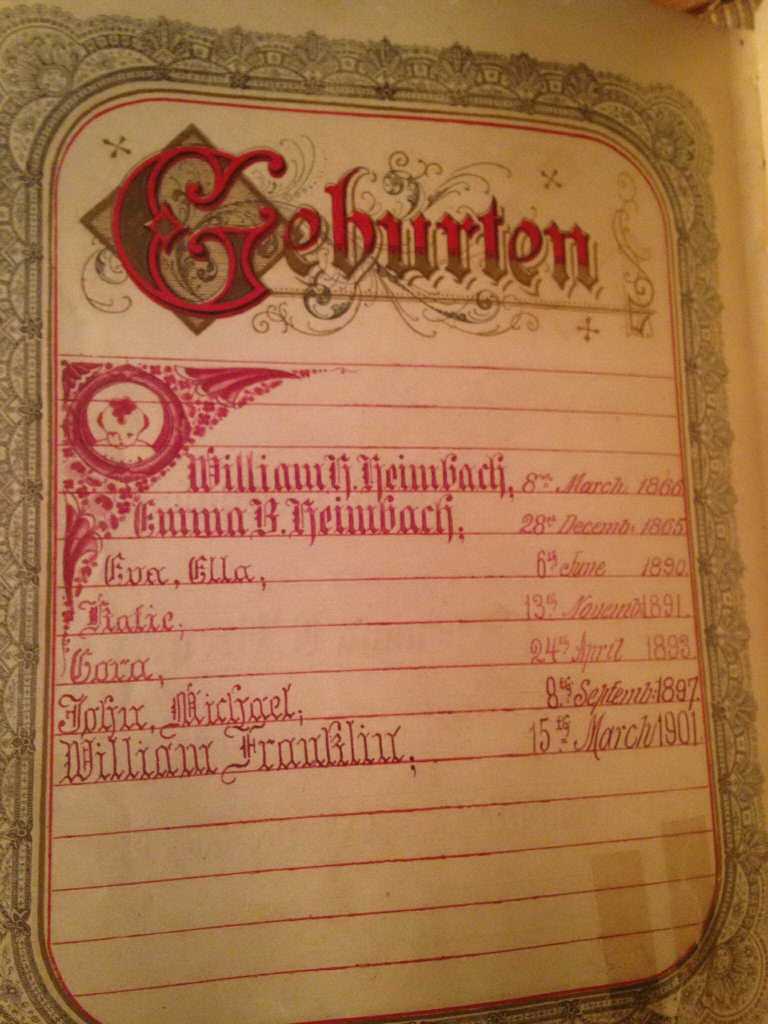 Geburten
William H. Heimbach, 8th March. 1866
Emma B. Heimbach, 28th Decemb. 1865
Eva, Ella, 6th June 1890.
Katie, 13th Novemb 1891.
Cora, 24th April 1893
John, Michael, 8th Septemb. 1897.
William Franklin, 15th March 1901.